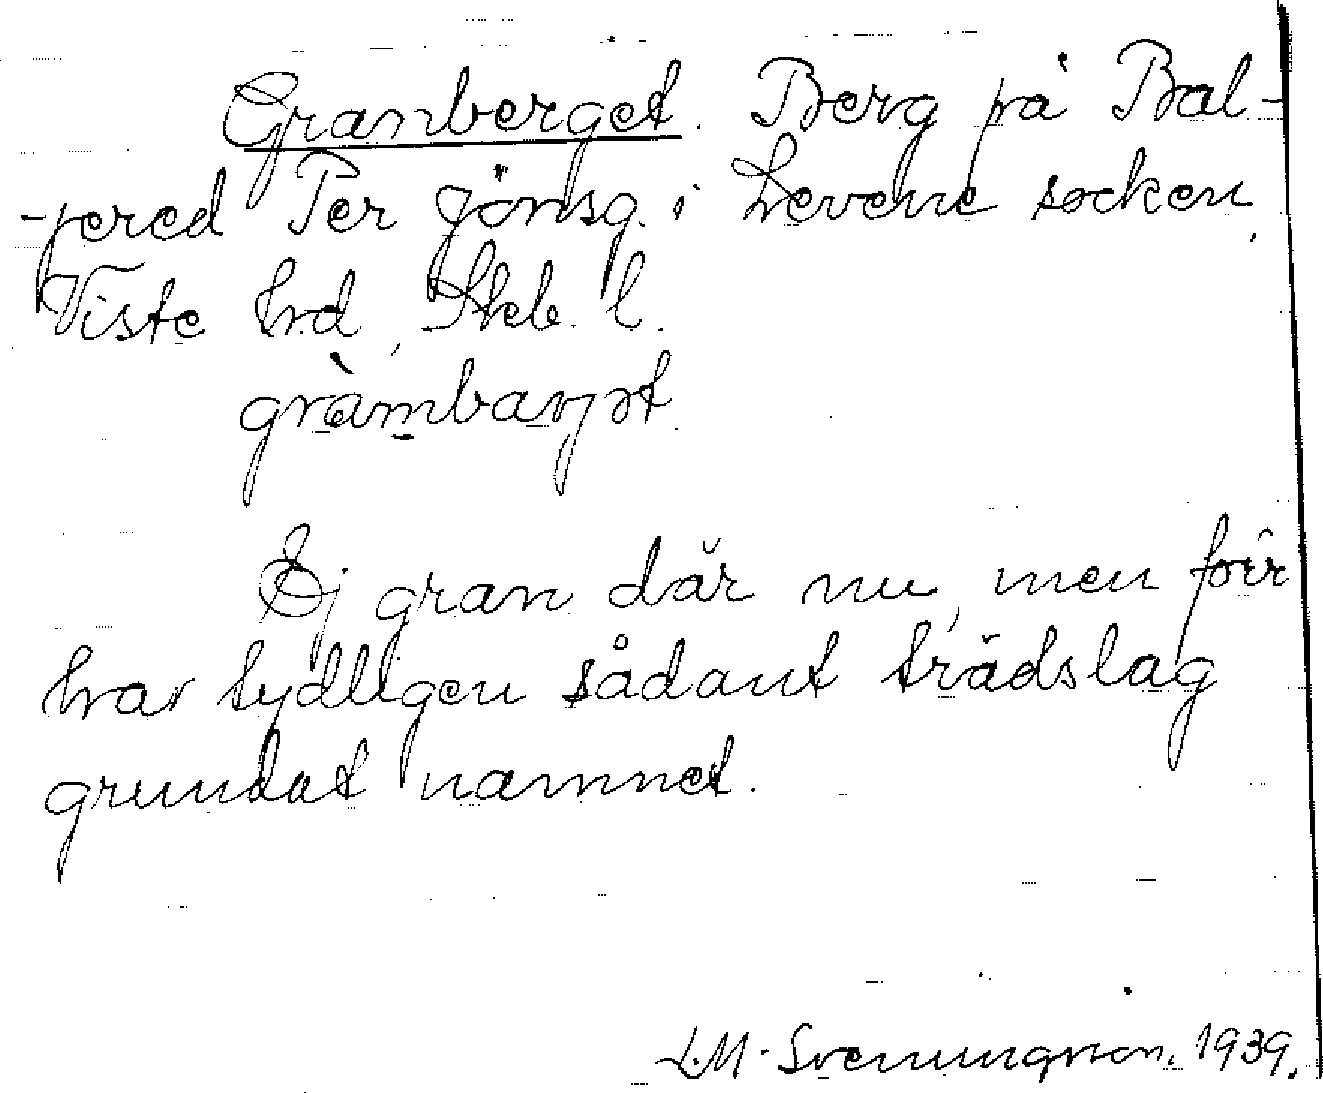 Granberget. Berg på Bal-
-pered Per Jönsg. i Levene socken,
Viste hrd, Skb. l.
gràmbarjət.
Ej gran där nu, men förr
har tydligen sådant trädslag
grundat namnet.
L.M. Svenungsson. 1939.